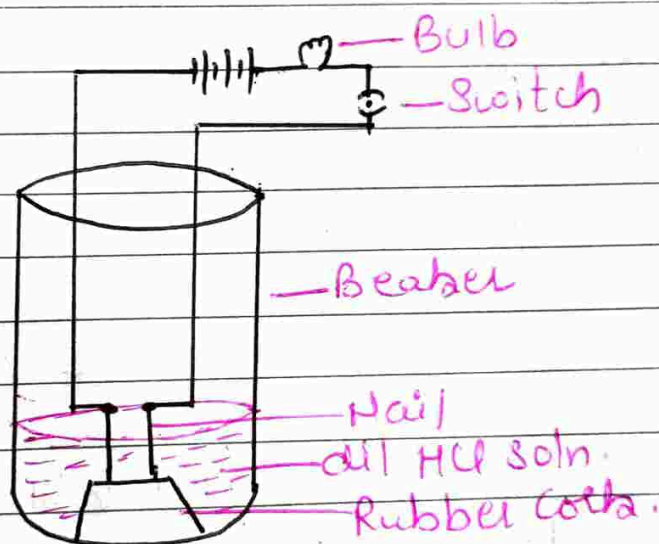 Bulb
Switch
Beaker
Nail
dil HCl soln.
Rubber Cork.